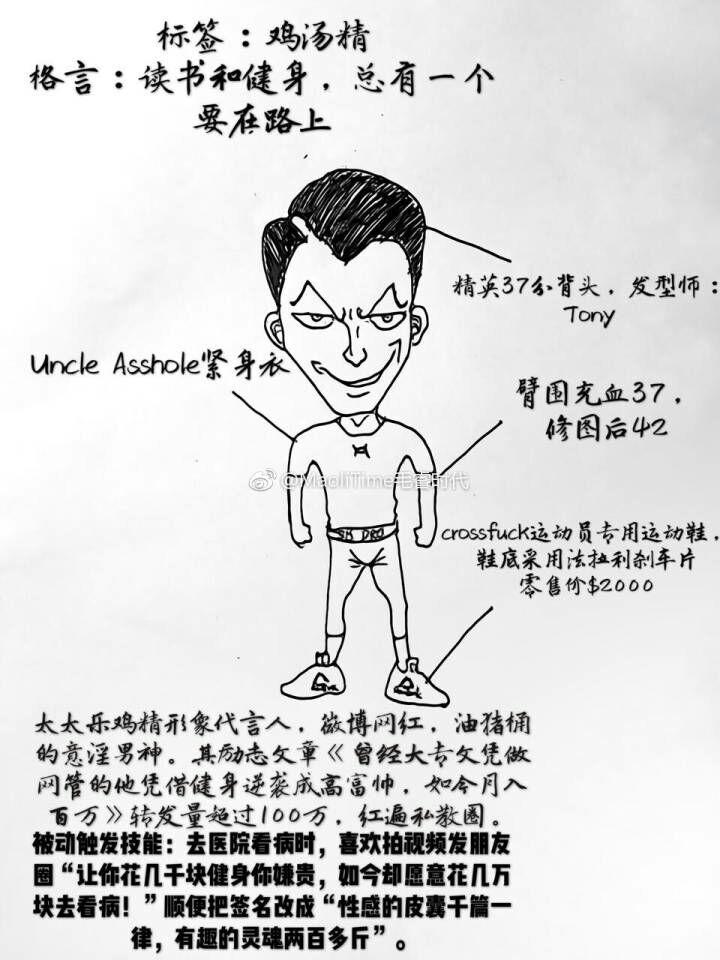 标签：鸡汤精
格言：读书和健身，总有一个
要在路上
精英37分背头，发型师：
Tony
Uncle Asshole紧身衣
臂围充血37，
修图后42
@MaoliTime毛蛋时代
SM DRO
crossfuck运动员专用运动鞋，
鞋底采用法拉利刹车片
零售价$2000
太太乐鸡精形象代言人，微博网红，油猪桶
的意淫男神。其励志文章《曾经大专文凭做
网管的他凭借健身逆袭成高富帅，如今月入
百万》转发量超过100万，红遍私教圈。
被动触发技能：去医院看病时，喜欢拍视频发朋友
圈“让你花几千块健身你嫌贵，如今却愿意花几万
块去看病！”顺便把签名改成“性感的皮囊千篇一
律，有趣的灵魂两百多斤”。